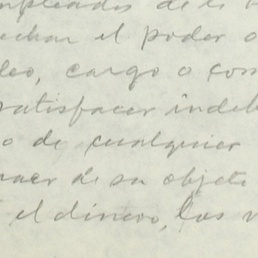 mpleados de la
echar el poder o
leo, cargo o com
satisfacer indeb
o de cualquier
traer de su objeto
el dinero, los v